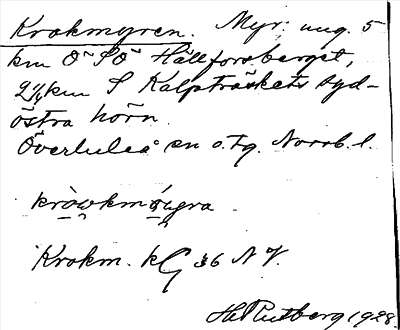 Krokmyren. Myr: ung. 5
km Ö-SÖ Hällforsberget,
2½ km S Kalpträskets syd-
östra hörn.
Överluleå sn o. tg. Norrb. l.
Krokm. kG 36 N V.
Rutberg 1928.